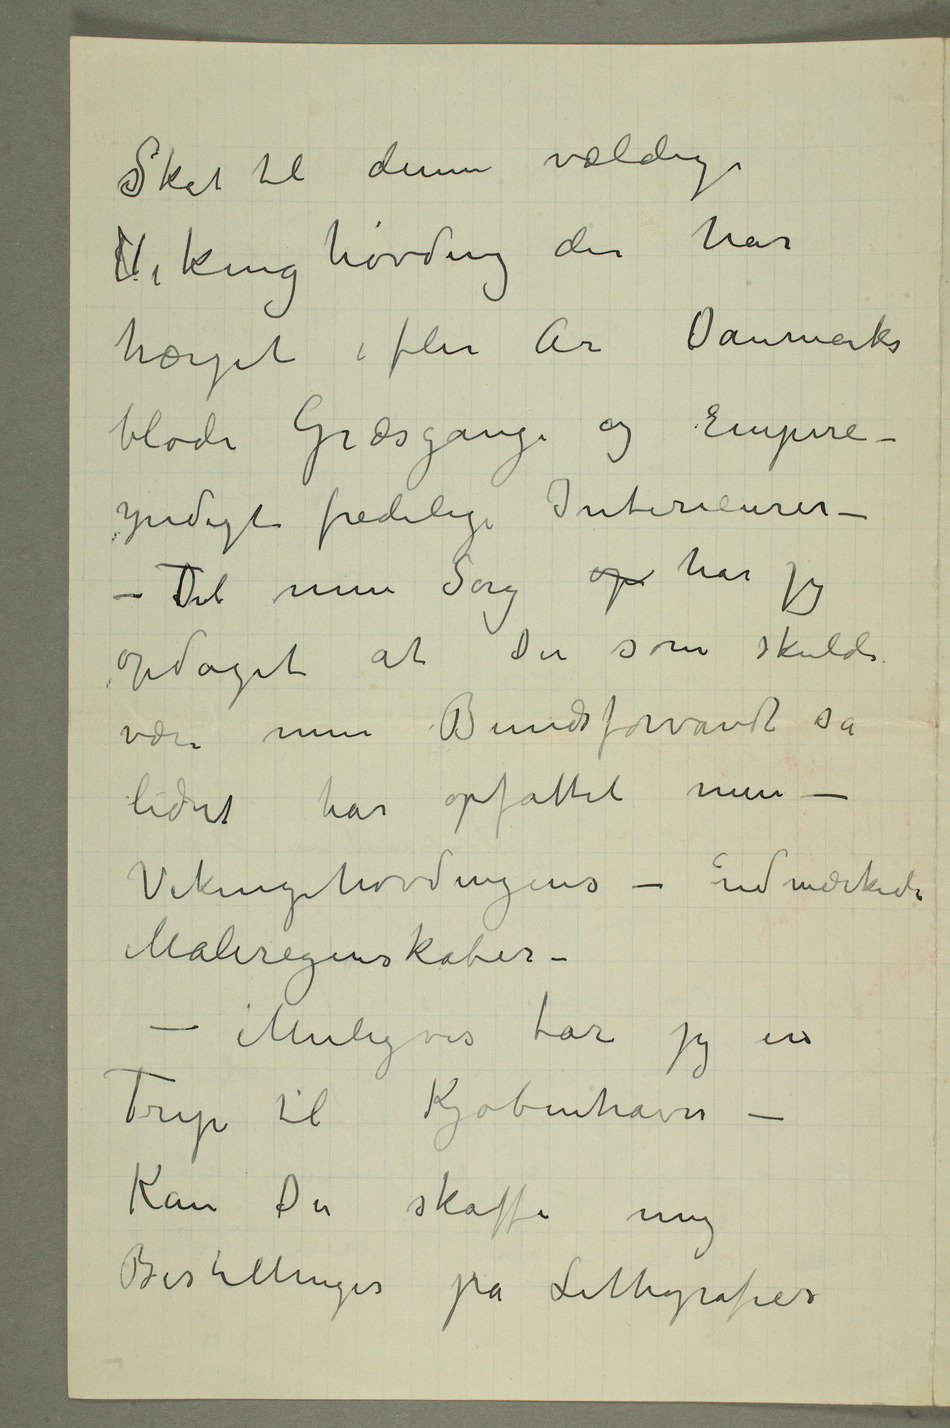 Skat til denne vældige
Vikinghøvding der har
hærget i flere År Danmarks
bløde Græsgange og Empire–
yndigt fredelige Interieurer –
– Til min Sorg op har jeg
opdaget at Du som skulde
være min Bundsforvandt så
lidet har opfattet min –
Vikingehøvdingens – udmærkede
Maleregenskaber –
– Muligvis tar jeg en
Trip til Kjøbenhavn –
Kan Du skaffe mig
Bestillinger på Lithografier